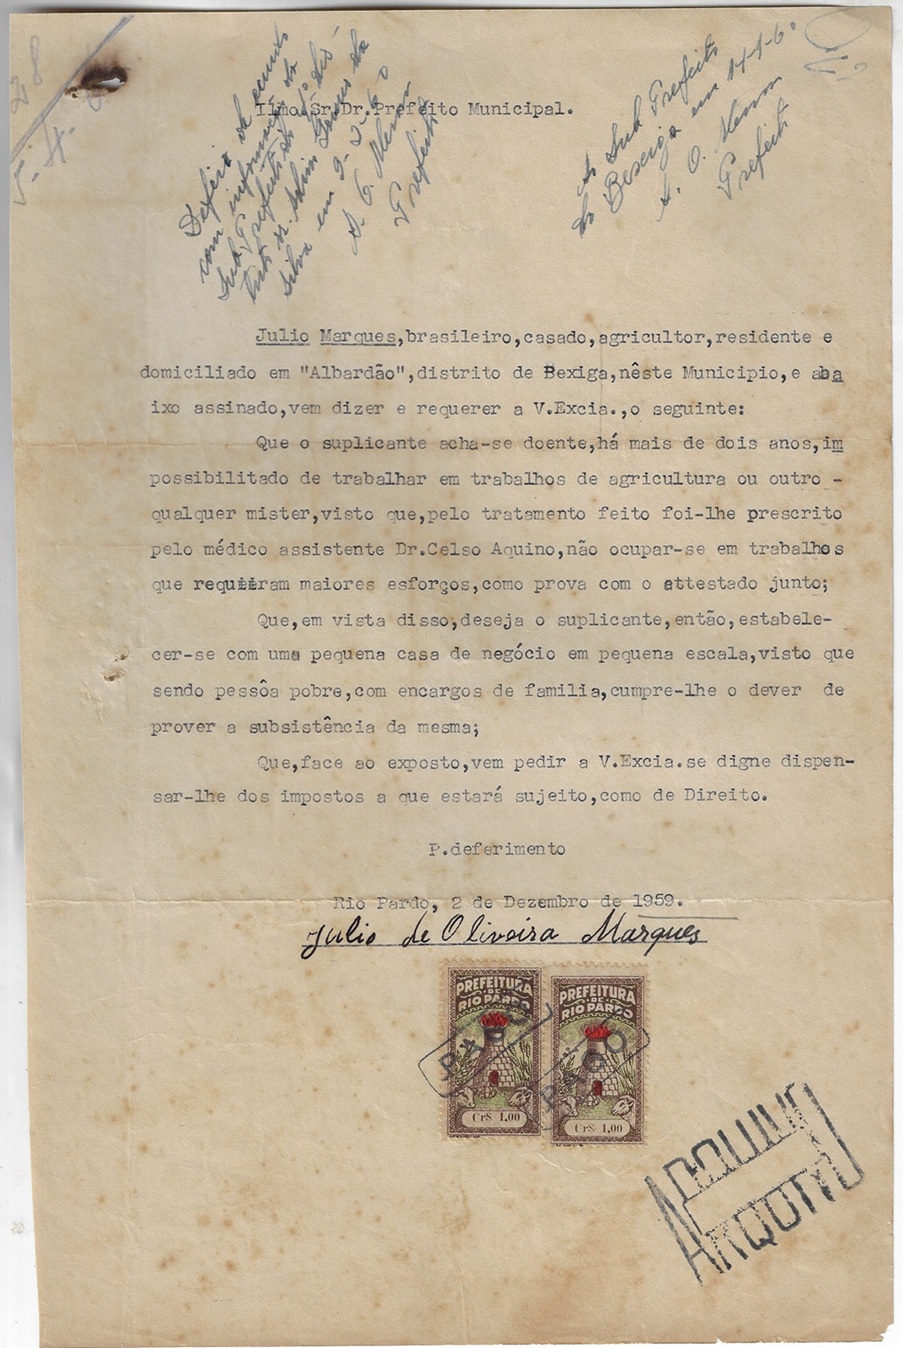 Ilmo.Sr.Dr.Prefeito Municipal.
Defiro de acordo
com informação do
Sub Prefeito
Silva em 9-2-60
A. O. Menna
Prefeito
Ao Sub Prefeito
do Bexiga em 14-1-60
A. O. Menna
Prefeito
Julio Marques,brasileiro,casado,agricultor,residente e
domiciliado em "Albardão",distrito de Bexiga,nêste Municipio,e aba
ixo assinado,vem dizer e requerer a V.Excia.,o seguinte:
Que o suplicante acha-se doente,há mais de dois anos,im
possibilitado de trabalhar em trabalhos de agricultura ou outro -
qualquer mister,visto que,pelo tratamento feito foi-lhe prescrito
pelo médico assistente Dr.Celso Aquino,não ocupar-se em trabalhos
que requeiram maiores esforços,como prova com o attestado junto;
Que,em vista disso,deseja o suplicante,então,estabele-
cer-se com uma pequena casa de negócio em pequena escala,visto que
sendo pessôa pobre,com encargos de familia,cumpre-lhe o dever de
prover a subsistência da mesma;
Que,face ao exposto,vem pedir a V.Excia.se digne dispen-
sar-lhe dos impostos a que estará sujeito,como de Direito.
P.deferimento
Rio Pardo, 2 de Dezembro de 1959.
Julio de Oliveira Marques
PREFEITURA
DE
RIO PARDO
PAGO
Cr$ 1,00
PREFEITURA
DE
RIO PARDO
PAGO
Cr$ 1,00
ARQUIVO